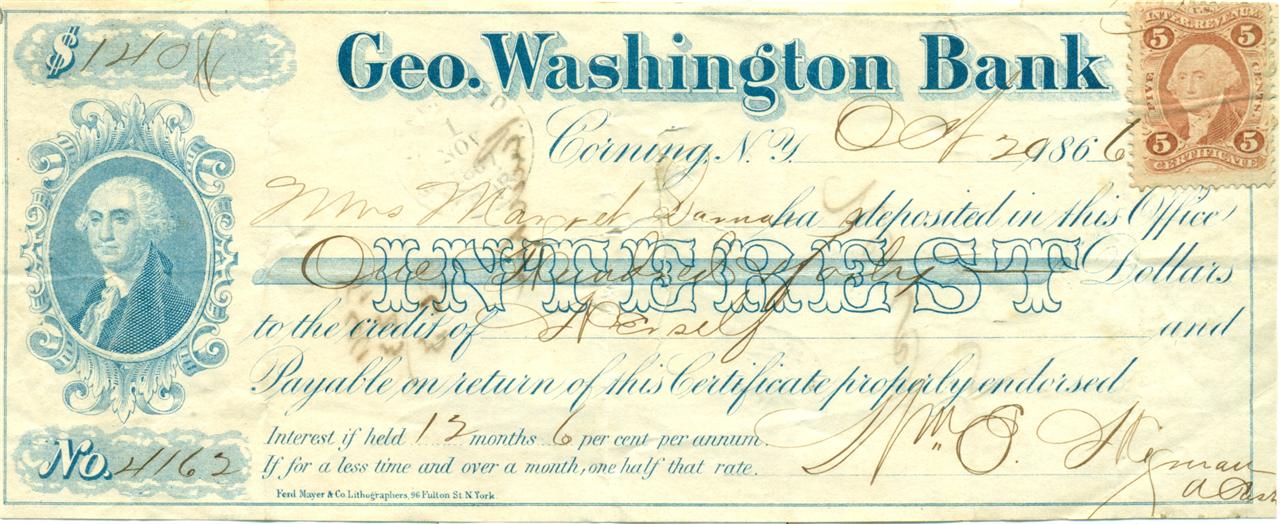 $140
Geo. Washington Bank
U.S. INTER. REVENUE
5 5
FIVE CENTS
5 5
CERTIFICATE
Corning, N.Y. Oct 29 1866
Mrs Margret deposited in this Office
One Hundred Forty Dollars
INTEREST
to the credit of Herself and
Payable on return of this Certificate properly endorsed
Interest if held 12 months 6 per cent per annum.
If for a less time and over a month, one half that rate.
No. 4162
Wm S.
Ferd Mayer & Co. Lithographers, 96 Fulton St. N. York